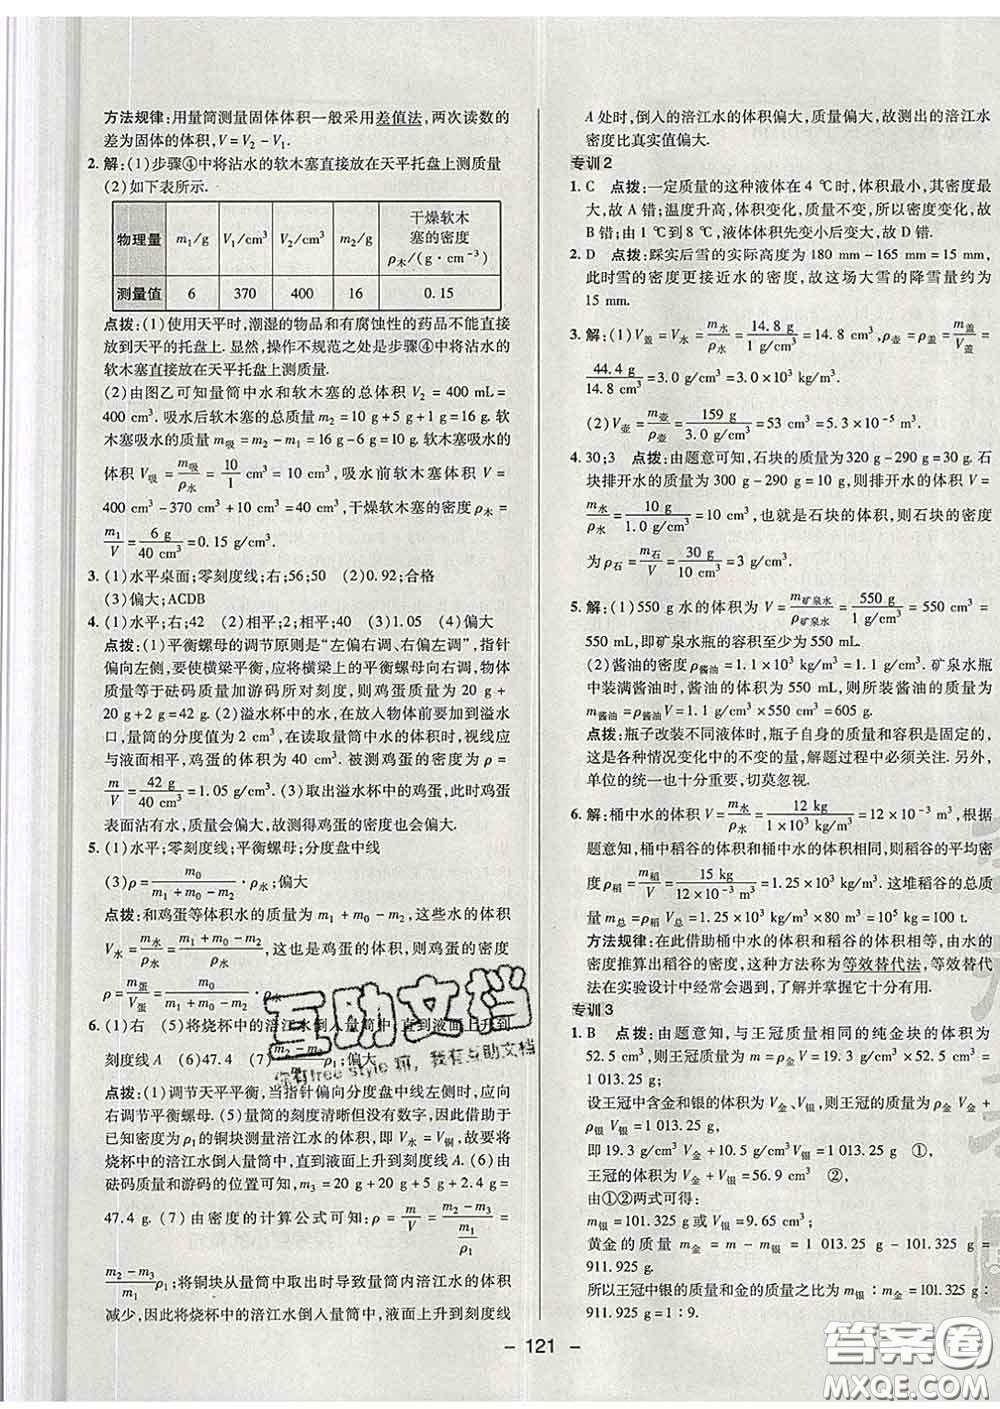 方法规律:用量筒测量固体体积一般采用差值法,两次读数的
差为固体的体积,V=V₂-V₁.
2. 解:(1)步骤④中将沾水的软木塞直接放在天平托盘上测质量
(2)如下表所示.
物理量 m₁/g V₁/cm³ V₂/cm³ m₂/g 干燥软木塞的密度ρ木/(g·cm⁻³)
测量值 6 370 400 16 0.15
点拨:(1)使用天平时,潮湿的物品和有腐蚀性的药品不能直接
放到天平的托盘上.显然,操作不规范之处是步骤④中将沾水的
软木塞直接放在天平托盘上测质量.
(2)由图乙可知量筒中水和软木塞的总体积 V₂=400 mL=
400 cm³.吸水后软木塞的总质量 m₂=10 g+5 g+1 g=16 g.软
木塞吸水的质量 m吸=m₂-m₁=16 g-6 g=10 g.软木塞吸水的
体积 V吸=m吸/ρ水=10/1 cm³=10 cm³,吸水前软木塞的体积 V=
400 cm³-370 cm³+10 cm³=40 cm³,干燥软木塞的密度 ρ木=
m₁/V=6 g/40 cm³=0.15 g/cm³.
3. (1)水平桌面;零刻度线;右;56;50 (2)0.92;合格
(3)偏大;ACDB
4. (1)水平;右;42 (2)相平;2;相平;40 (3)1.05 (4)偏大
点拨:(1)平衡螺母的调节原则是“左偏右调、右偏左调”,指针
偏向左侧,要使横梁平衡,应将横梁上的平衡螺母向右调,物体
质量等于砝码质量加游码所对刻度,则鸡蛋质量为 20 g+
20 g+2 g=42 g.(2)溢水杯中的水,在放入物体前要加到溢水
口,量筒的分度值为 2 cm³,在读取量筒中水的体积时,视线应
与液面相平,鸡蛋的体积为 40 cm³.被测鸡蛋的密度为 ρ=
m/V=42 g/40 cm³=1.05 g/cm³.(3)取出溢水杯中的鸡蛋,此时鸡蛋
表面沾有水,质量会偏大,故测得鸡蛋的密度也会偏大.
5. (1)水平;零刻度线;平衡螺母;分度盘中线
(3)ρ=m₀/(m₁+m₀-m₂)·ρ水;偏大
点拨:和鸡蛋等体积水的质量为 m₁+m₀-m₂,这些水的体积
V水=m水/ρ水=(m₁+m₀-m₂)/ρ水,这也是鸡蛋的体积,则鸡蛋的密度
ρ=m蛋/V蛋=m₀/(m₁+m₀-m₂)·ρ水
6. (1)右 (5)将烧杯中的涪江水倒入量筒中,直到液面上升到
刻度线 A (6)47.4 (7)(m₂-m₃)/m₁ρ₁;偏大
点拨:(1)调节天平平衡,当指针偏向分度盘中线左侧时,应向
右调节平衡螺母.(5)量筒的刻度清晰但没有数字,因此借助于
已知密度为ρ₁的铜块测量涪江水的体积,即 V水=V铜,故要将
烧杯中的涪江水倒入量筒中,直到液面上升到刻度线 A.(6)由
砝码质量和游码的位置可知,m₃=20 g+20 g+5 g+2.4 g=
47.4 g.(7)由密度的计算公式可知:ρ=m/V=(m₂-m₃)/(m₁/ρ₁)=
(m₂-m₃)/m₁ρ₁;将铜块从量筒中取出时导致量筒内涪江水的体积
减少,因此将烧杯中的涪江水倒入量筒中,液面上升到刻度线
A 处时,倒入的涪江水的体积偏大,质量偏大,故测出的涪江水
密度比真实值偏大.
专训2
1. C 点拨:一定质量的这种液体在 4 ℃时,体积最小,其密度最
大,故 A 错;温度升高,体积变化,质量不变,所以密度变化,故
B 错;由 1 ℃到 8 ℃,液体体积先变小后变大,故 D 错.
2. D 点拨:踩实后雪的实际高度为 180 mm-165 mm=15 mm,
此时雪的密度更接近水的密度,故这场大雪的降雪量约为
15 mm.
3. 解:(1)V盖=V水=m水/ρ水=14.8 g/1 g/cm³=14.8 cm³,ρ壶=ρ盖=m盖/V盖=
44.4 g/14.8 cm³=3.0 g/cm³=3.0×10³ kg/m³.
(2)V壶=m壶/ρ壶=159 g/3.0 g/cm³=53 cm³=5.3×10⁻⁵ m³.
4. 30;3 点拨:由题意可知,石块的质量为320 g-290 g=30 g.石
块排开水的质量为 300 g-290 g=10 g,则排开水的体积 V=
m水/ρ水=10 g/1.0 g/cm³=10 cm³,也就是石块的体积,则石块的密度
为ρ石=m石/V=30 g/10 cm³=3 g/cm³.
5. 解:(1)550 g 水的体积为 V=m矿泉水/ρ矿泉水=550 g/1 g/cm³=550 cm³=
550 mL,即矿泉水瓶的容积至少为 550 mL.
(2)酱油的密度ρ酱油=1.1×10³ kg/m³=1.1 g/cm³.矿泉水瓶
中装满酱油时,酱油的体积为 550 mL,则所装酱油的质量为
m酱油=ρ酱油V=1.1 g/cm³×550 cm³=605 g.
点拨:瓶子改装不同液体时,瓶子自身的质量和容量是固定的,
这是各种情况变化中的不变的量,解题过程中必须关注.另外,
单位的统一也十分重要,切莫忽视.
6. 解:桶中水的体积 V=m水/ρ水=12 kg/1×10³ kg/m³=12×10⁻³ m³,根据
题意知,桶中稻谷的体积和桶中水的体积相同,则稻谷的平均密
度ρ稻=m稻/V=15 kg/12×10⁻³ m³=1.25×10³ kg/m³;这堆稻谷的总质
量 m总=ρ稻V总=1.25×10³ kg/m³×80 m³=10⁵ kg=100 t.
方法规律:在此借助桶中水的体积和稻谷的体积相等,由水的
密度推算出稻谷的密度,这种方法称为等效替代法,等效替代
法在实验设计中经常会遇到,了解并掌握它十分有用.
专训3
1. B 点拨:由题意知,与王冠质量相同的纯金块的体积为
52.5 cm³,则王冠的质量为 m=ρ金V=19.3 g/cm³×52.5 cm³=
1 013.25 g
设王冠中含金和银的体积为 V金、V银,则王冠的质量为ρ金 V金+
ρ银 V银=1 013.25 g,
即 19.3 g/cm³×V金+10.5 g/cm³×V银=1 013.25 g ①,
王冠的体积为 V金+V银=56.9 cm³ ②
由①②两式可得:
m银=101.325 g或 V银=9.65 cm³;
黄金的质量 m金=m-m银=1 013.25 g-101.325 g=
911.925 g.
所以王冠中银的质量和金的质量之比为 m银:m金=101.325 g:
911.925 g=1:9.
- 121 -
互助文档
你有free style 吗,我有互助文档
答案圈
MXQE.COM